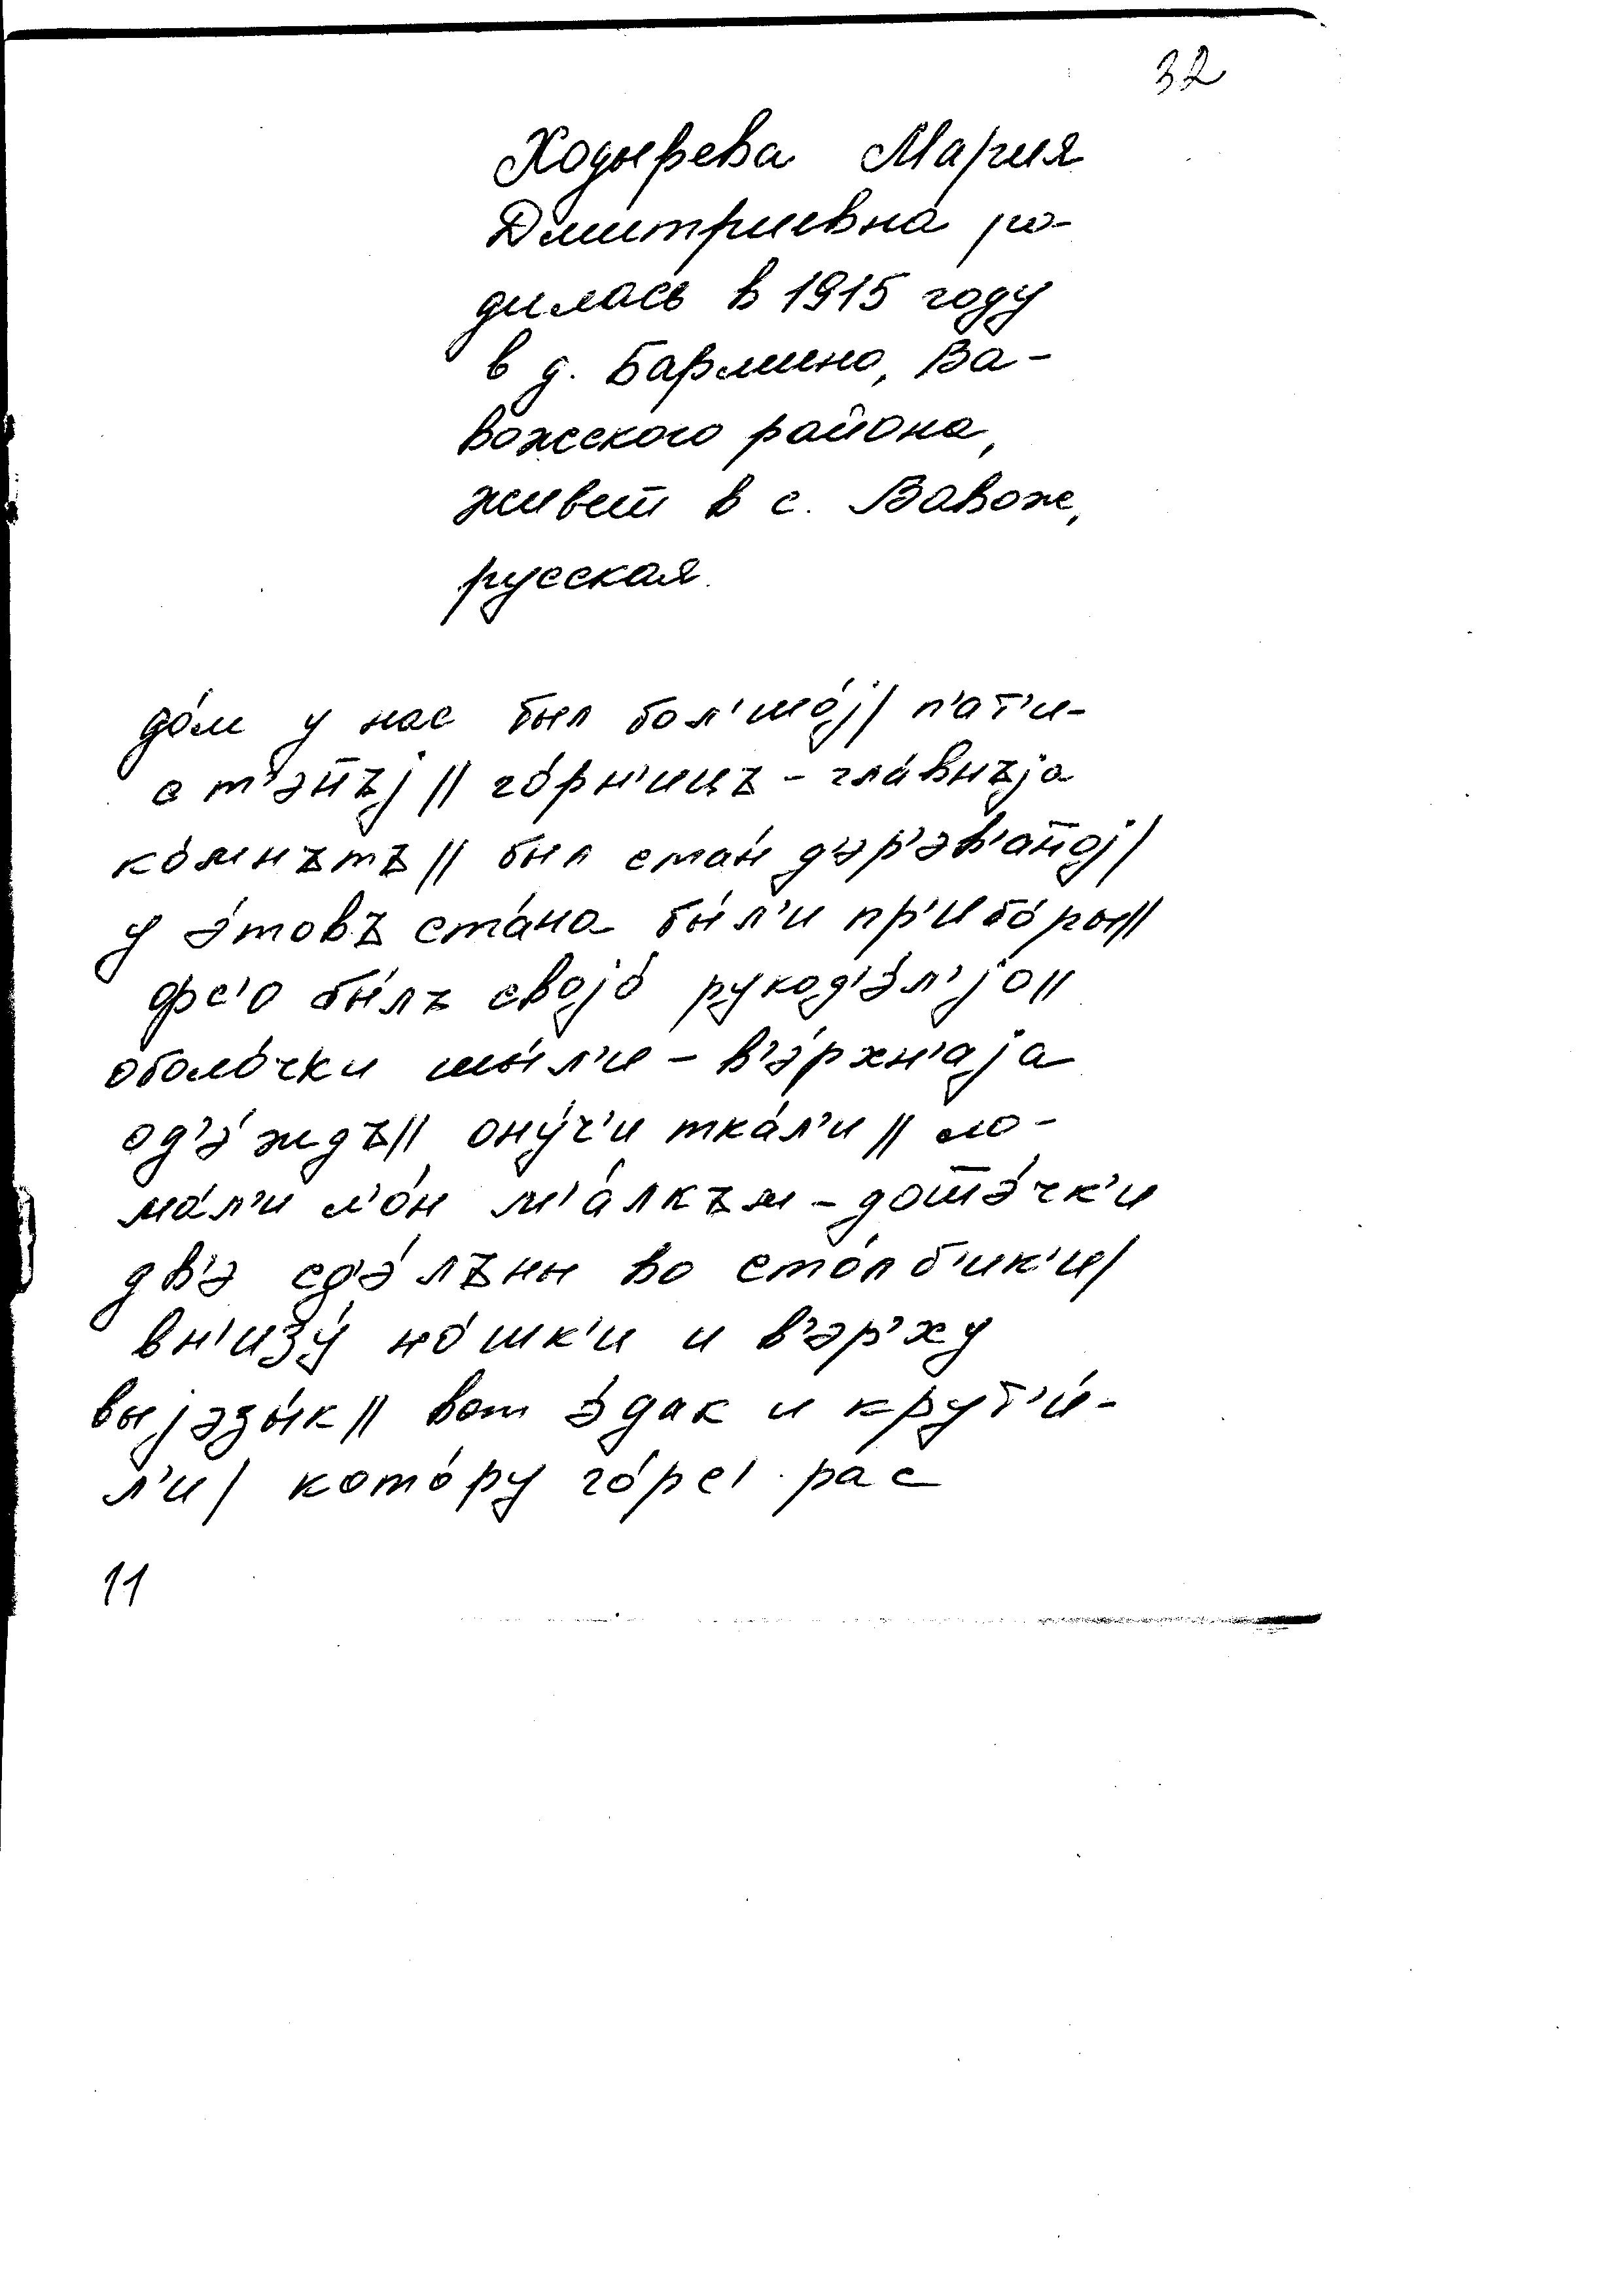 32
Ходырева Мария
Дмитриевна ро-
дилась в 1915 году
в д. Бармино, Ва-
вожского района,
живет в с. Вавож,
русская.
до́м у нас был бол'шо́j/ п'ат'и-
ст'эн̄ъj // го́рн'ицъ - гла́внъjа
ко́мнътъ // был ста́н д'эр'эв'а́н̄оj/
у э́товъ ста́на бы́л'и пр'ибо́ры//
фс'о бы́лъ своjо́ рукод'э́л'jо//
оболо́чки шы́л'и - в'э́рхн'аjа
од'э́ждъ// ону́ч'и тка́л'и // ло-
ма́л'и л'о́н м'а́лкъм - дош̄э́чк'и
дв'э сд'э́лъны во сто́лб'ик'и/
вн'изу́ но́шк'и и в'эр'ху
выjэзы́к// вот э́дак и крут'и́-
л'и/ кото́ру го́рс' рас
11